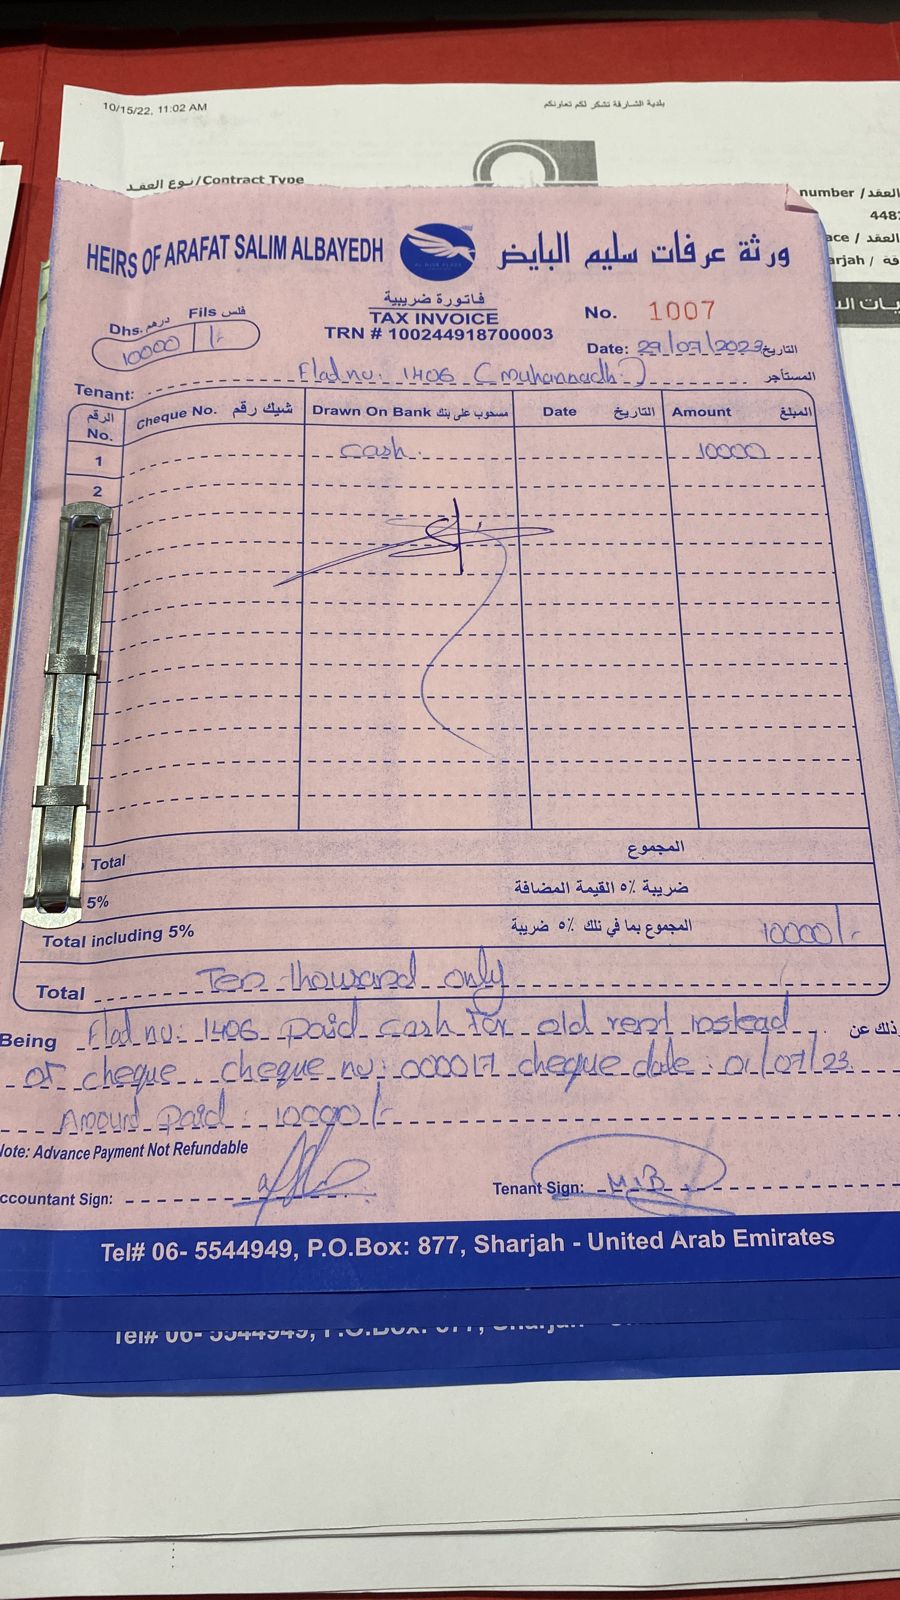 10/15/22, 11:02 AM
بلدية الشارقة تشكر لكم تعاونكم
نوع العقد/Contract Type
number / العقد
448
ace / العقد
arjah / قة
HEIRS OF ARAFAT SALIM ALBAYEDH
ورثة عرفات سليم البايض
Dhs. درهم Fils فلس
10000 /-
فاتورة ضريبية
TAX INVOICE
TRN # 100244918700003
No. 1007
Date: 29/07/2023 التاريخ
Tenant: Flad nu. 1406 (muhannadh.) المستأجر
الرقم No. Cheque No. شيك رقم Drawn On Bank مسحوب على بنك Date التاريخ Amount المبلغ
1 cash. 10000
2
Total المجموع
5% ضريبة ٥٪ القيمة المضافة
Total including 5% المجموع بما في ذلك ٥٪ ضريبة 10000/-
Total Ten thousand only
Being Flad nu. 1406 paid cash for old rent instead ذلك عن
of cheque cheque nu: 000017 cheque date: 01/07/23
Amount paid: 10000/-
Note: Advance Payment Not Refundable
ccountant Sign: Tenant Sign: M.B
Tel# 06- 5544949, P.O.Box: 877, Sharjah - United Arab Emirates
Tel# 06- 5544949, P.O.Box: 877, Sharjah